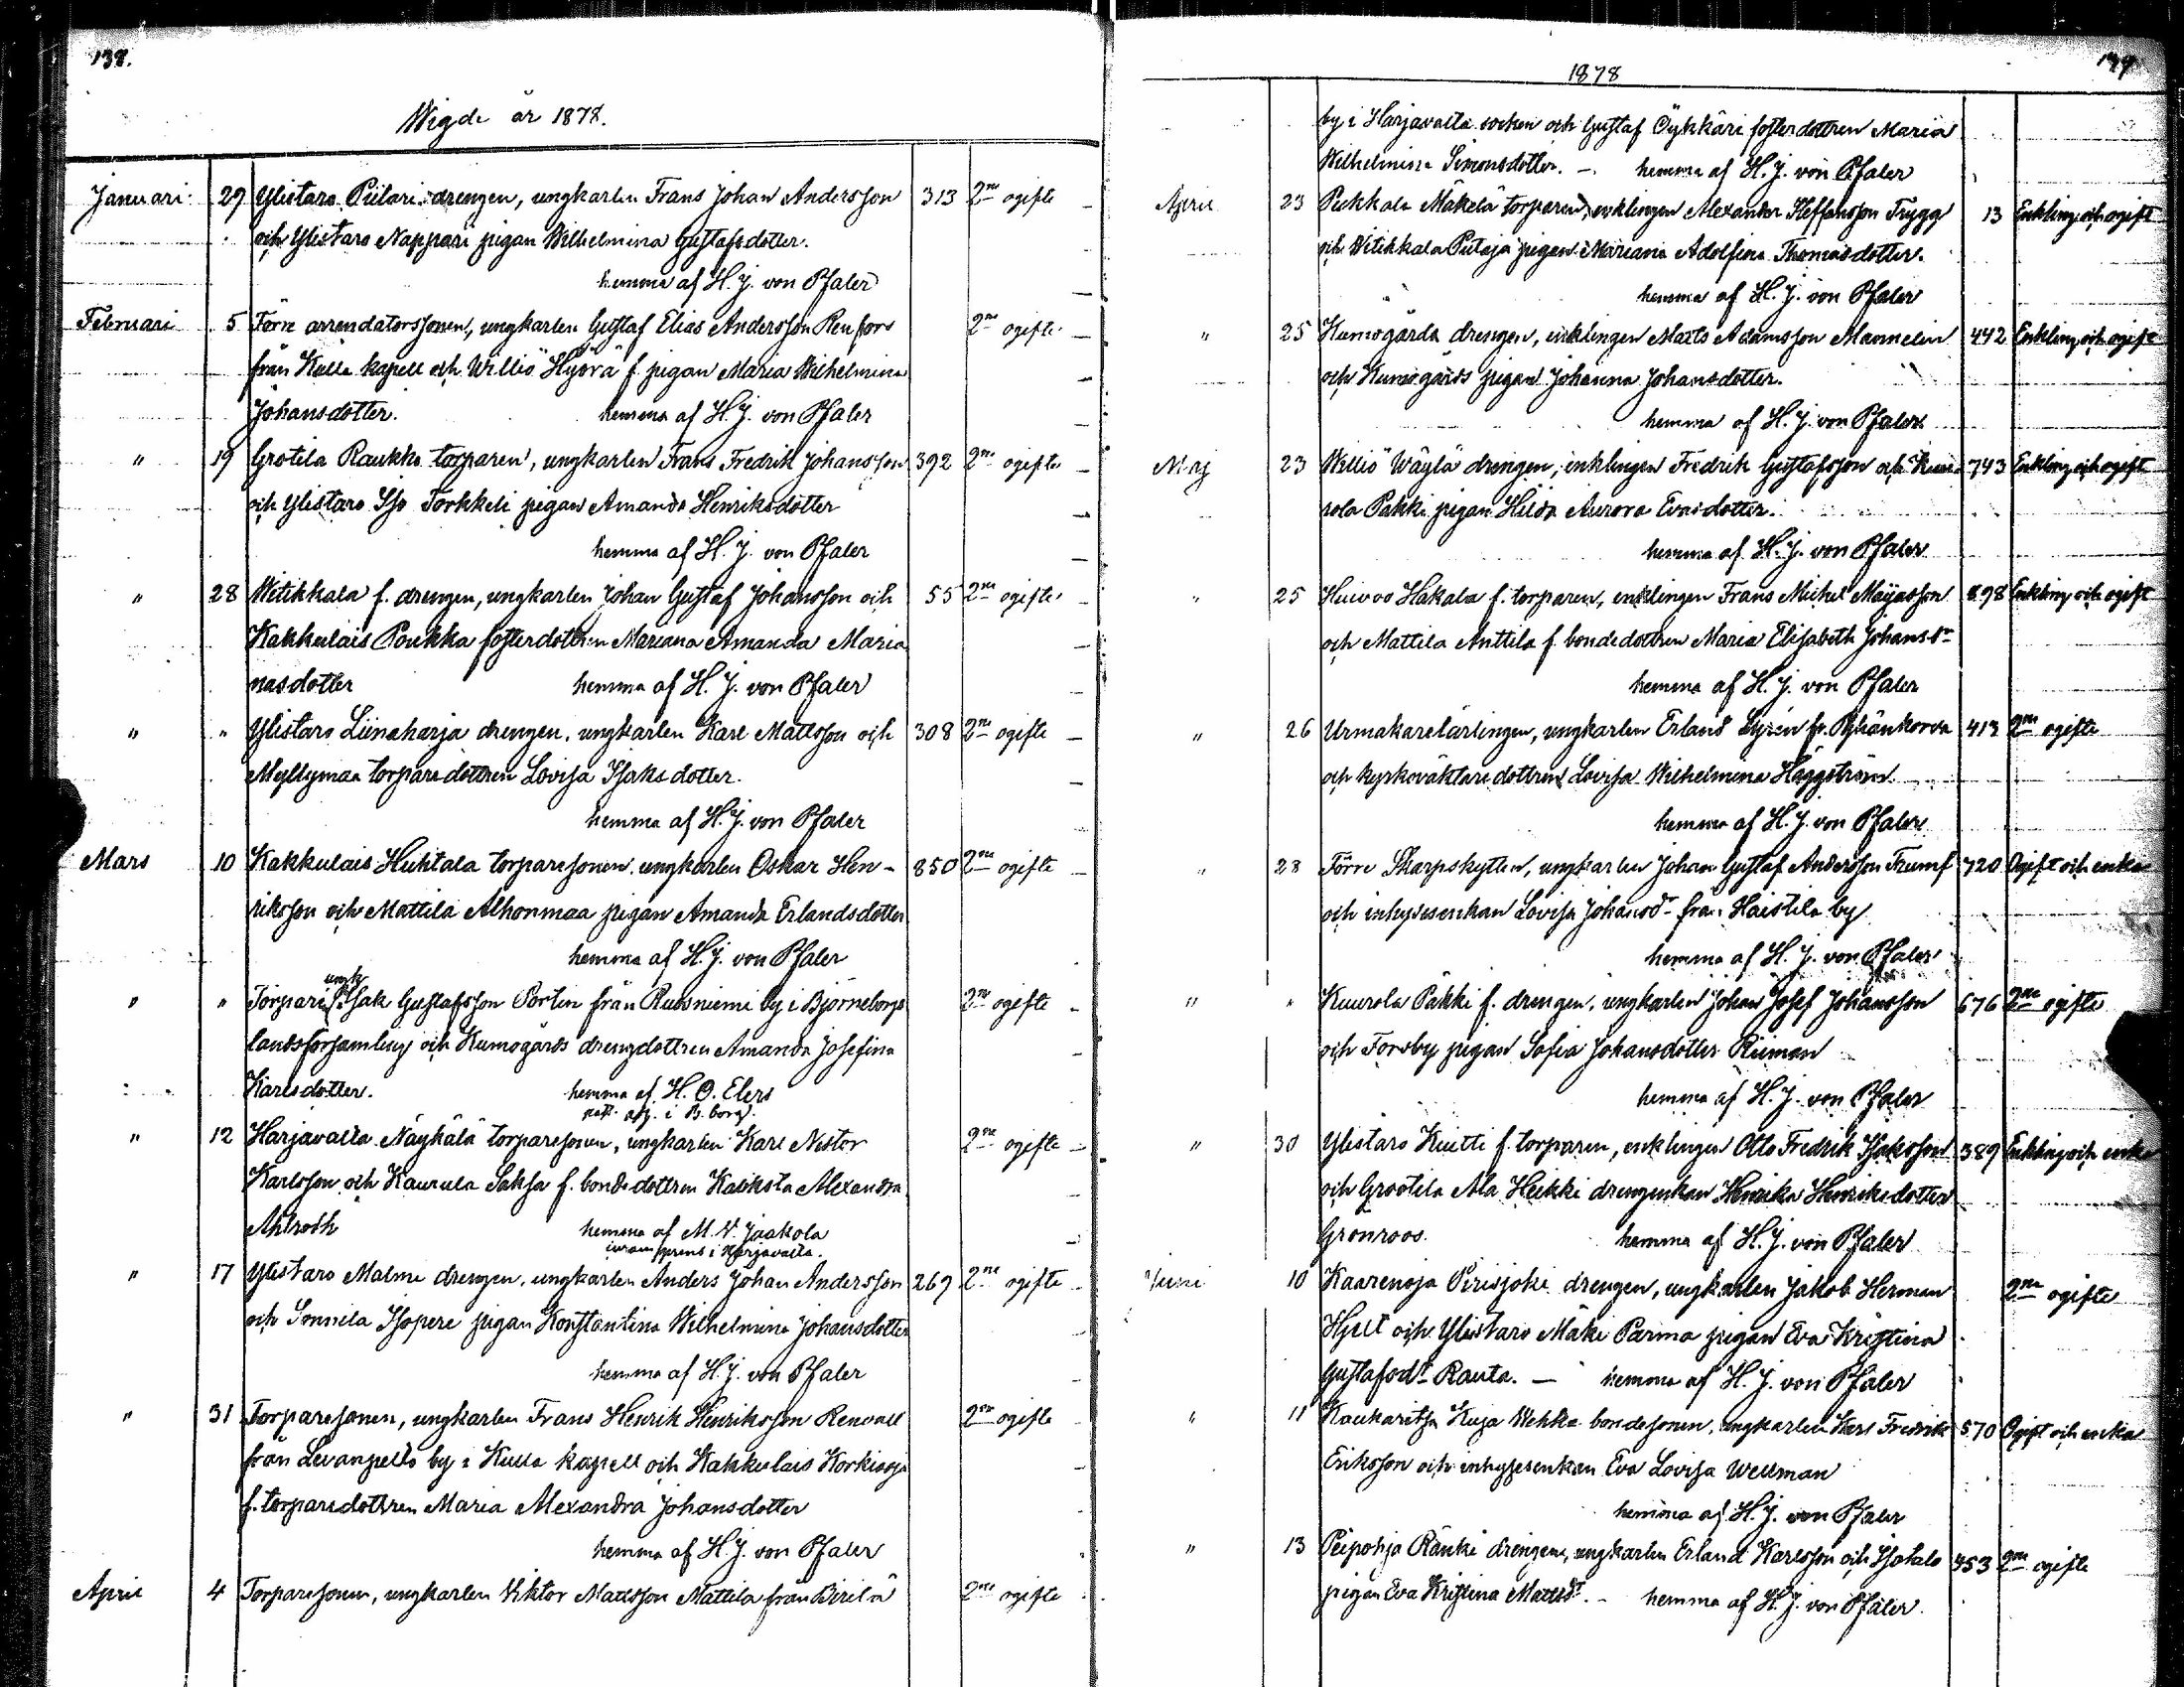 138.
Wigde år 1878.
Januari 29 Ylistaro Piilari drengen, ungkarlen Frans Johan Andersson 313 2ne ogifte
och Ylistaro Nappari pigan Wilhelmina Gustafsdotter.
hemma af H. J. von Pfaler
Februari 5 Torre arrendatorssonen, ungkarlen Gustaf Elias Andersson Renfors 2ne ogifte
från Kulla kapell och Williö Hyörä f. pigan Maria Wilhelmina
Johansdotter. hemma af H. J. von Pfaler
" 19 Grotila Raukko torparen, ungkarlen Frans Fredrik Johansson 392 2ne ogifte
och Ylistaro Iso Torkkeli pigan Amanda Henriksdotter
hemma af H. J. von Pfaler
" 28 Witikkala f. drengen, ungkarlen Johan Gustaf Johansson och 55 2ne ogifte
Kakkulais Poukka fosterdottren Mariana Amanda Maria
nasdotter hemma af H. J. von Pfaler
" " Ylistaro Liinaharja drengen, ungkarlen Karl Mattsson och 308 2ne ogifte
Myllymaa torparedottren Lovisa Isaksdotter.
hemma af H. J. von Pfaler
Mars 10 Kakkulais Huhtala torparesonen ungkarlen Oskar Hen- 850 2ne ogifte
riksson och Mattila Alhonmaa pigan Amanda Erlandsdotter
hemma af H. J. von Pfaler
" " Torpari ungk Isak Gustafsson Portin från Ruosniemi by i Björneborgs 2ne ogifte
landsforsamling och Kumogårds drengdottren Amanda Josefina
Karlsdotter. hemma af H. O. Elers
past. adj. i B. borg.
" 12 Harjavalta Näyhälä torparesonen, ungkarlen Karl Nestor 2ne ogifte
Karlsson och Kaurula Saksa f. bondedottren Kaliksta Alexandra
Ahlroth hemma af M. V. Jaakola
i Harjavalta.
" 17 Ylistaro Malmi drengen, ungkarlen Anders Johan Andersson 269 2ne ogifte
och Sonnila Isopere pigan Konstantina Wilhelmina Johansdotter
hemma af H. J. von Pfaler
" 31 Torparesonen, ungkarlen Frans Henrik Henriksson Renvall 2ne ogifte
från Levanpelto by i Kulla kapell och Kakkulais Korkiaoja
f. torparedottren Maria Alexandra Johansdotter
hemma af H. J. von Pfaler
April 4 Torparesonen, ungkarlen Viktor Mattsson Mattila från Pirilä 2ne ogifte
1878
by i Harjavalta socken och Gustaf Öykkäri fosterdottren Maria
Wilhelmina Simonsdotter. – hemma af H. J. von Pfaler
April 23 Pukkala Mäkelä torparen, enklingen Alexander Steffansson Trygg 13 Enkling och ogift
och Witikkala Putaja pigan Mariana Adolfina Thomasdotter.
hemma af H. J. von Pfaler
" 25 Kumogårds drengen, enklingen Matts Adamsson Mannelin 442 Enkling och ogift
och Kumogårds pigan Johanna Johansdotter.
hemma af H. J. von Pfaler
Maj 23 Williö Wäylä drengen, enklingen Fredrik Gustafsson och Kuu- 743 Enkling och ogift
rola Pakki pigan Hilda Aurora Evasdotter.
hemma af H. J. von Pfaler
" 25 Huivoo Hakala f. torparen, enklingen Frans Michel Majasson 898 Enkling och ogift
och Mattila Anttila f. bondedottren Maria Elisabeth Johansdr
hemma af H. J. von Pfaler
" 26 Urmakarelärlingen, ungkarlen Erland Syrén fr. Pyhänkorva 413 2ne ogifte
och kyrkoväktaredottren Lovisa Wilhelmina Häggström
hemma af H. J. von Pfaler
" 28 Torre Skarpskytten, ungkarlen Johan Gustaf Andersson Trumf 720 Ogift och enka
och inhysesenkan Lovisa Johansdr från Haistila by
hemma af H. J. von Pfaler
" " Kuurola Pakki f. drengen, ungkarlen Johan Josef Johansson 676 2ne ogifte
och Forsby pigan Sofia Johansdotter Riiman
hemma af H. J. von Pfaler
" 30 Ylistaro Knutti f. torparen, enklingen Otto Fredrik Isaksson 389 Enkling och enka
och Grootila Ala Heikki drengenkan Henrika Henriksdotter
Grönroos. hemma af H. J. von Pfaler
Juni 10 Kaarenoja Pirisjoki drengen, ungkarlen Jakob Herman 2ne ogifte
Hjelt och Ylistaro Mäki Parma pigan Eva Kristina
Gustafsdr Rauta. – hemma af H. J. von Pfaler
" 11 Kaukaritsa Kuja Wehka bondesonen, ungkarlen Karl Fredrik 570 Ogift och enka
Eriksson och inhysesenkan Eva Lovisa Wellman
hemma af H. J. von Pfaler
" 13 Peipohja Ränki drengen, ungkarlen Erland Karlsson och Isotalo 453 2ne ogifte
pigan Eva Kristina Mattsdr. – hemma af H. J. von Pfaler.